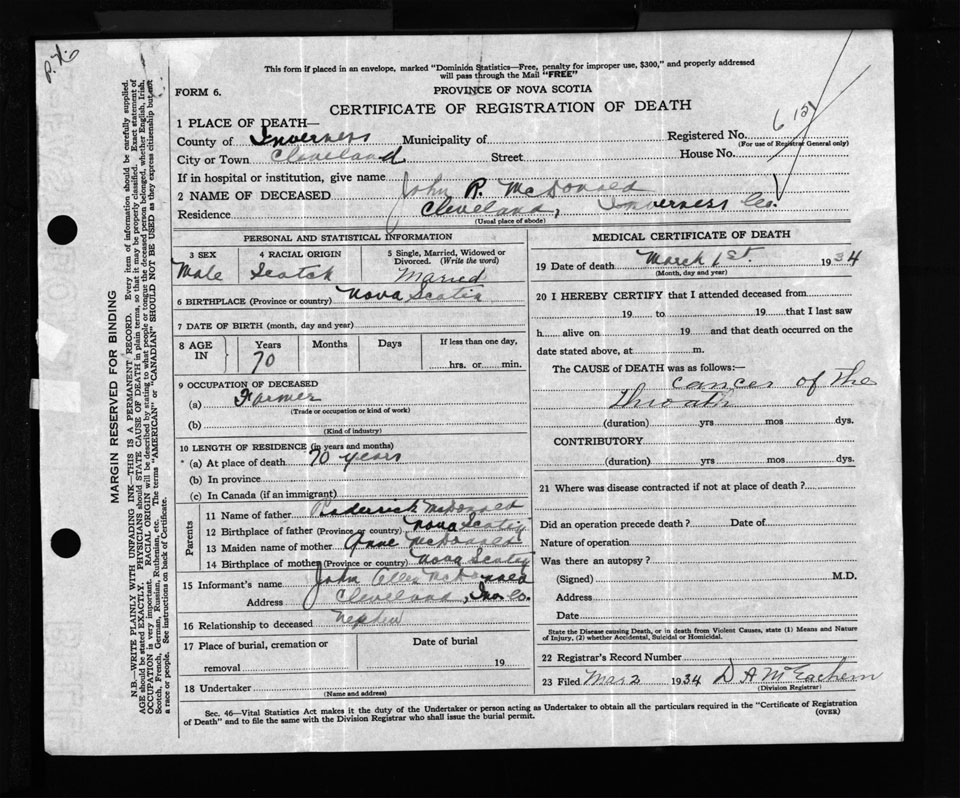 P.X.6
This form if placed in an envelope, marked "Dominion Statistics—Free, penalty for improper use, $300," and properly addressed
will pass through the Mail "FREE"
FORM 6.
PROVINCE OF NOVA SCOTIA
CERTIFICATE OF REGISTRATION OF DEATH
1 PLACE OF DEATH—
County of Inverness Municipality of Registered No. 6 121
(For use of Registrar General only)
City or Town Cleveland Street House No.
If in hospital or institution, give name
2 NAME OF DECEASED John R. McDonald
Residence Cleveland, Inverness Co.
(Usual place of abode)
PERSONAL AND STATISTICAL INFORMATION
3 SEX 4 RACIAL ORIGIN 5 Single, Married, Widowed or
Divorced. (Write the word)
Male Scotch Married
6 BIRTHPLACE (Province or country) Nova Scotia
7 DATE OF BIRTH (month, day and year)
8 AGE IN Years Months Days If less than one day,
70 hrs. or min.
9 OCCUPATION OF DECEASED
(a) Farmer
(Trade or occupation or kind of work)
(b)
(Kind of industry)
10 LENGTH OF RESIDENCE (in years and months)
(a) At place of death 70 years
(b) In province
(c) In Canada (if an immigrant)
Parents
11 Name of father Roderick McDonald
12 Birthplace of father (Province or country) Nova Scotia
13 Maiden name of mother Anne McDonald
14 Birthplace of mother (Province or country) Nova Scotia
15 Informant's name John Allen McDonald
Address Cleveland, Inv. Co.
16 Relationship to deceased Nephew
17 Place of burial, cremation or Date of burial
removal 19
18 Undertaker
(Name and address)
MEDICAL CERTIFICATE OF DEATH
19 Date of death March 1st. 1934
(Month, day and year)
20 I HEREBY CERTIFY that I attended deceased from
19 to 19 that I last saw
h alive on 19 and that death occurred on the
date stated above, at m.
The CAUSE of DEATH was as follows:—
cancer of the
throath
(duration) yrs mos dys.
CONTRIBUTORY
(duration) yrs mos dys.
21 Where was disease contracted if not at place of death?
Did an operation precede death? Date of
Nature of operation
Was there an autopsy?
(Signed) M.D.
Address
Date
State the Disease causing Death, or in death from Violent Causes, state (1) Means and Nature
of Injury, (2) whether Accidental, Suicidal or Homicidal.
22 Registrar's Record Number
23 Filed Mar 2 1934 D A McEachern
(Division Registrar)
Sec. 46—Vital Statistics Act makes it the duty of the Undertaker or person acting as Undertaker to obtain all the particulars required in the "Certificate of Registration
of Death" and to file the same with the Division Registrar who shall issue the burial permit.
(OVER)
MARGIN RESERVED FOR BINDING
N.B.—WRITE PLAINLY WITH UNFADING INK—THIS IS A PERMANENT RECORD. Every item of information should be carefully supplied.
AGE should be stated EXACTLY. PHYSICIANS should STATE CAUSE OF DEATH in plain terms, so that it may be properly classified. Exact statement of
OCCUPATION is very important. RACIAL ORIGIN will be described by stating to what people or tongue the deceased person belonged, whether English, Irish,
Scotch, French, German, Russian, Ruthenian, etc. The terms "AMERICAN" or "CANADIAN" SHOULD NOT BE USED as they express citizenship but not
a race or people. See instructions on back of Certificate.